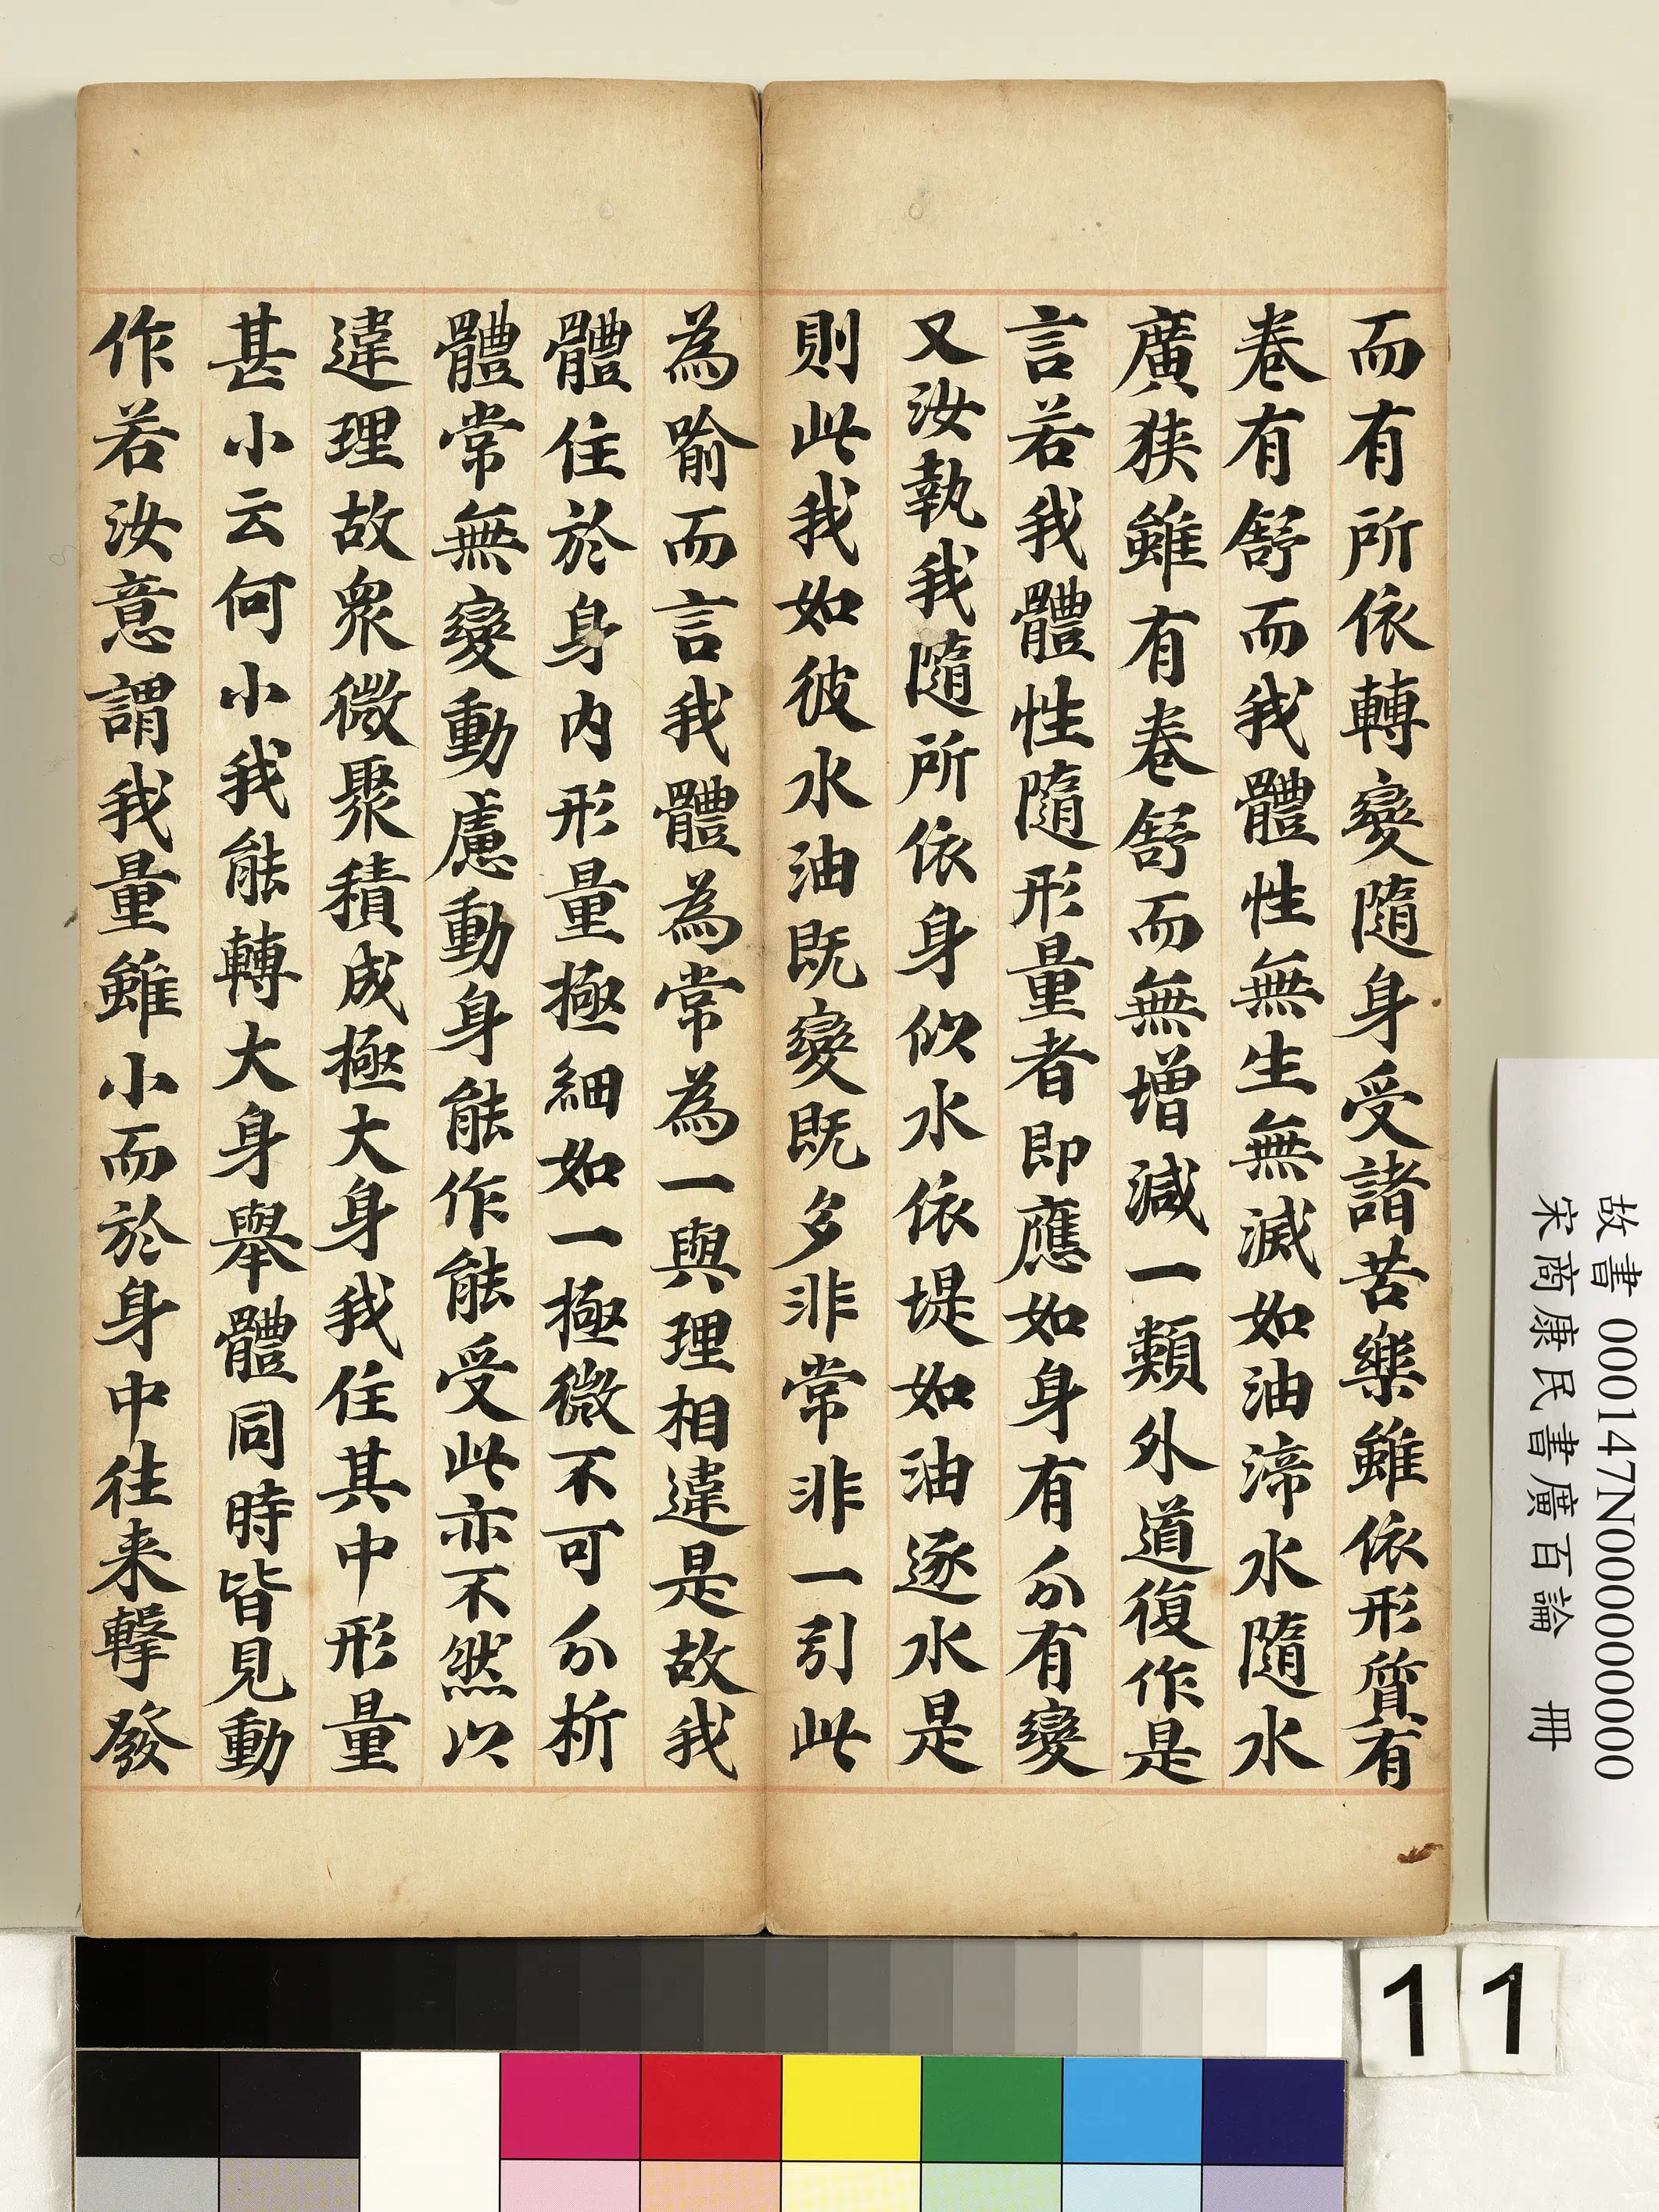 而有所依轉變隨身受諸苦樂雖依形質有
卷有舒而我體性無生無滅如油渧水隨水
廣狹雖有卷舒而無增減一類外道復作是
言若我體性隨形量者即應如身有分有變
又汝執我隨所依身似水依堤如油逐水是
則此我如彼水油既變既多非常非一引此
為喻而言我體為常為一與理相違是故我
體住於身內形量極細如一極微不可分析
體常無變動慮動身能作能受此亦不然以
違理故眾微聚積成極大身我住其中形量
甚小云何小我能轉大身舉體同時皆見動
作若汝意謂我量雖小而於身中往来擊發
故書 000147N000000000
宋商康民書廣百論 冊
11